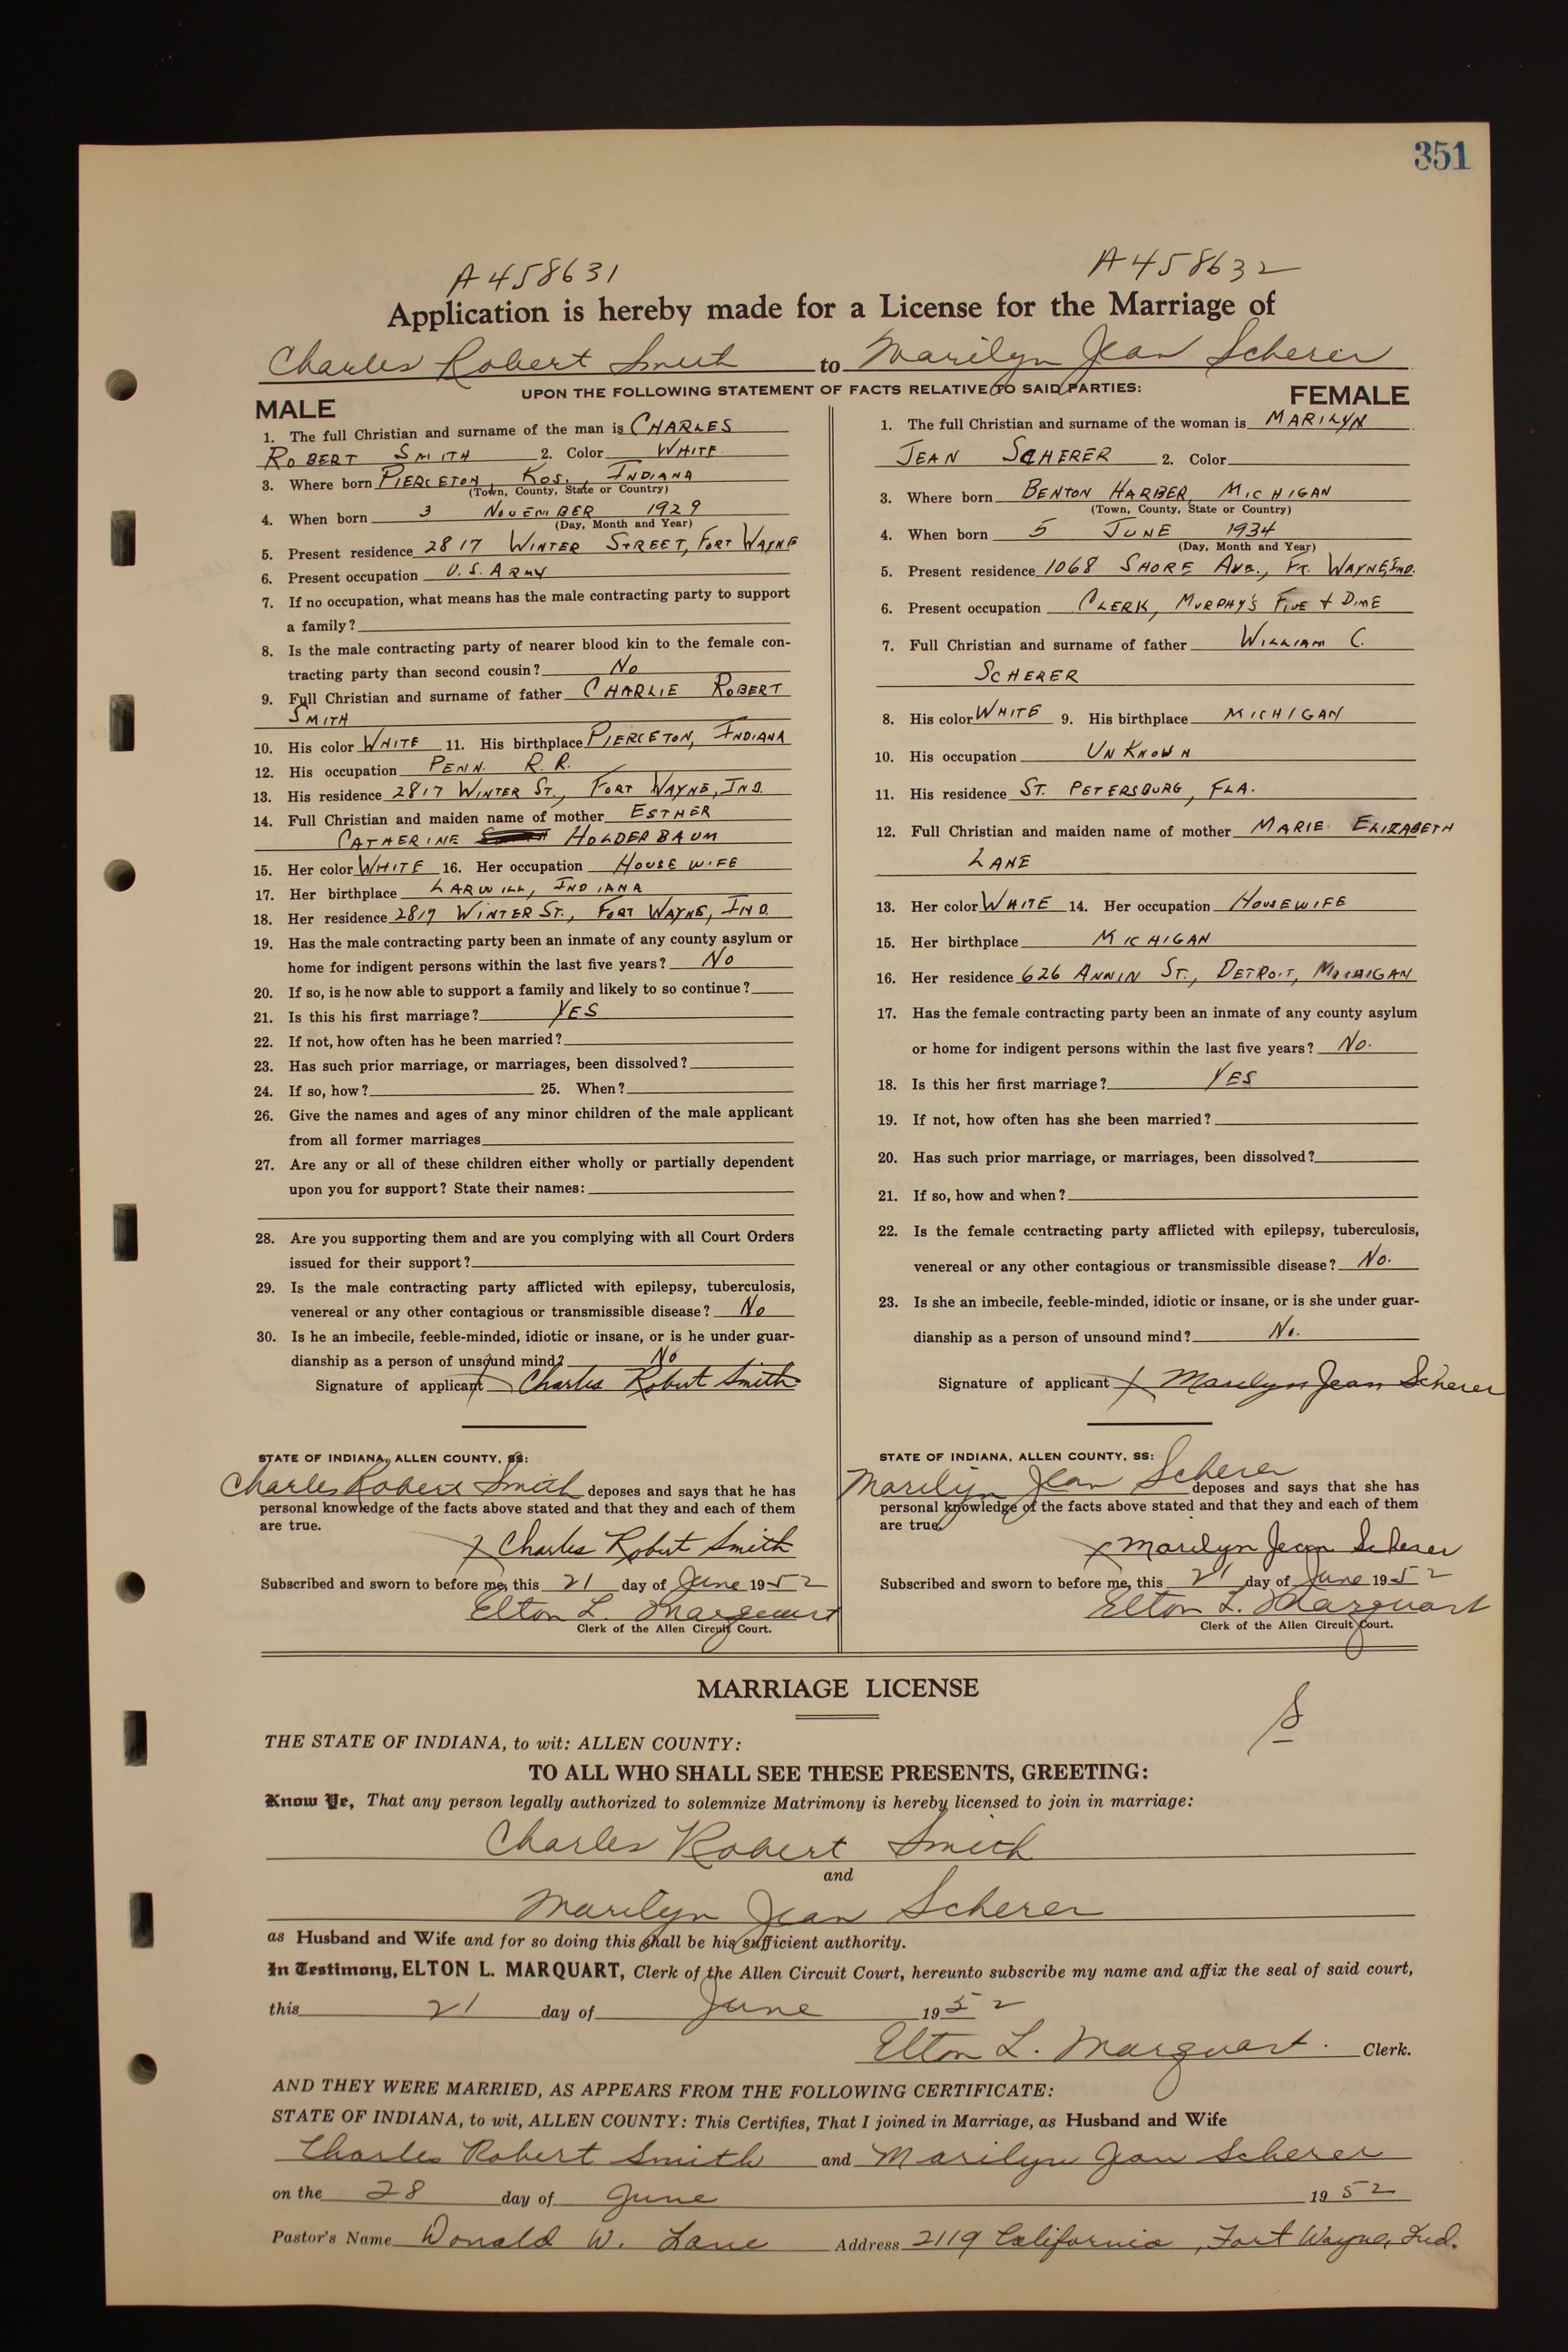 351
A458631 A458632
Application is hereby made for a License for the Marriage of
Charles Robert Smith to Marilyn Jean Scherer
UPON THE FOLLOWING STATEMENT OF FACTS RELATIVE TO SAID PARTIES:
MALE
1. The full Christian and surname of the man is CHARLES
ROBERT SMITH 2. Color WHITE
3. Where born PIERCETON, KOS., INDIANA
(Town, County, State or Country)
4. When born 3 NOVEMBER 1929
(Day, Month and Year)
5. Present residence 2817 WINTER STREET, FORT WAYNE
6. Present occupation U.S. ARMY
7. If no occupation, what means has the male contracting party to support
a family?
8. Is the male contracting party of nearer blood kin to the female con-
tracting party than second cousin? No
9. Full Christian and surname of father CHARLIE ROBERT
SMITH
10. His color WHITE 11. His birthplace PIERCETON, INDIANA
12. His occupation PENN. R.R.
13. His residence 2817 WINTER ST., FORT WAYNE, IND.
14. Full Christian and maiden name of mother ESTHER
CATHERINE HOLDERBAUM
15. Her color WHITE 16. Her occupation HOUSEWIFE
17. Her birthplace LARWILL, INDIANA
18. Her residence 2817 WINTER ST., FORT WAYNE, IND.
19. Has the male contracting party been an inmate of any county asylum or
home for indigent persons within the last five years? No
20. If so, is he now able to support a family and likely to so continue?
21. Is this his first marriage? YES
22. If not, how often has he been married?
23. Has such prior marriage, or marriages, been dissolved?
24. If so, how? 25. When?
26. Give the names and ages of any minor children of the male applicant
from all former marriages
27. Are any or all of these children either wholly or partially dependent
upon you for support? State their names:
28. Are you supporting them and are you complying with all Court Orders
issued for their support?
29. Is the male contracting party afflicted with epilepsy, tuberculosis,
venereal or any other contagious or transmissible disease? No
30. Is he an imbecile, feeble-minded, idiotic or insane, or is he under guar-
dianship as a person of unsound mind? No
Signature of applicant X Charles Robert Smith
STATE OF INDIANA, ALLEN COUNTY, SS:
Charles Robert Smith deposes and says that he has
personal knowledge of the facts above stated and that they and each of them
are true.
X Charles Robert Smith
Subscribed and sworn to before me, this 21 day of June 1952
Elton L. Marquart
Clerk of the Allen Circuit Court.
FEMALE
1. The full Christian and surname of the woman is MARILYN
JEAN SCHERER 2. Color
3. Where born BENTON HARBER, MICHIGAN
(Town, County, State or Country)
4. When born 5 JUNE 1934
(Day, Month and Year)
5. Present residence 1068 SHORE AVE., FT. WAYNE, IND.
6. Present occupation CLERK, MURPHY'S FIVE + DIME
7. Full Christian and surname of father WILLIAM C.
SCHERER
8. His color WHITE 9. His birthplace MICHIGAN
10. His occupation UNKNOWN
11. His residence ST. PETERSBURG, FLA.
12. Full Christian and maiden name of mother MARIE ELIZABETH
LANE
13. Her color WHITE 14. Her occupation HOUSEWIFE
15. Her birthplace MICHIGAN
16. Her residence 626 ANNIN ST., DETROIT, MICHIGAN
17. Has the female contracting party been an inmate of any county asylum
or home for indigent persons within the last five years? No.
18. Is this her first marriage? YES
19. If not, how often has she been married?
20. Has such prior marriage, or marriages, been dissolved?
21. If so, how and when?
22. Is the female contracting party afflicted with epilepsy, tuberculosis,
venereal or any other contagious or transmissible disease? No.
23. Is she an imbecile, feeble-minded, idiotic or insane, or is she under guar-
dianship as a person of unsound mind? No.
Signature of applicant X Marilyn Jean Scherer
STATE OF INDIANA, ALLEN COUNTY, SS:
Marilyn Jean Scherer deposes and says that she has
personal knowledge of the facts above stated and that they and each of them
are true.
X Marilyn Jean Scherer
Subscribed and sworn to before me, this 21 day of June 1952
Elton L. Marquart
Clerk of the Allen Circuit Court.
MARRIAGE LICENSE
THE STATE OF INDIANA, to wit: ALLEN COUNTY:
TO ALL WHO SHALL SEE THESE PRESENTS, GREETING:
Know Ye, That any person legally authorized to solemnize Matrimony is hereby licensed to join in marriage:
Charles Robert Smith
and
Marilyn Jean Scherer
as Husband and Wife and for so doing this shall be his sufficient authority.
In Testimony, ELTON L. MARQUART, Clerk of the Allen Circuit Court, hereunto subscribe my name and affix the seal of said court,
this 21 day of June 1952
Elton L. Marquart. Clerk.
AND THEY WERE MARRIED, AS APPEARS FROM THE FOLLOWING CERTIFICATE:
STATE OF INDIANA, to wit, ALLEN COUNTY: This Certifies, That I joined in Marriage, as Husband and Wife
Charles Robert Smith and Marilyn Jean Scherer
on the 28 day of June 1952
Pastor's Name Donald W. Lane Address 2119 California, Fort Wayne, Ind.